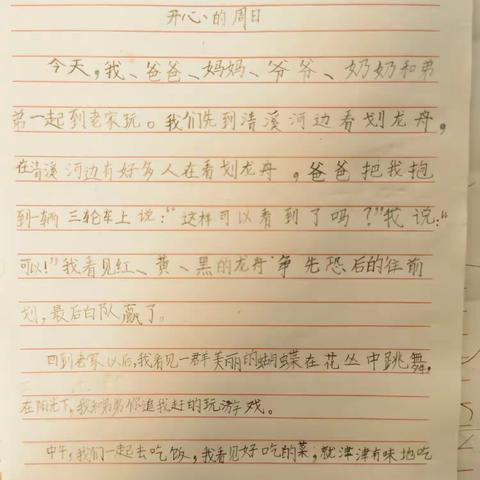 开心的周日
今天，我、爸爸、妈妈、爷爷、奶奶和弟
弟一起到老家玩。我们先到清溪河边看划龙舟，
在清溪河边有好多人在看划龙舟，爸爸把我抱
到一辆三轮车上说：“这样可以看到了吗？”我说：“
可以！”我看见红、黄、黑的龙舟争先恐后的往前
划，最后白队赢了。
回到老家以后，我看见一群美丽的蝴蝶在花丛中跳舞，
在阳光下，我和弟弟你追我赶的玩游戏。
中午，我们一起去吃饭，我看见好吃的菜，就津津有味地吃